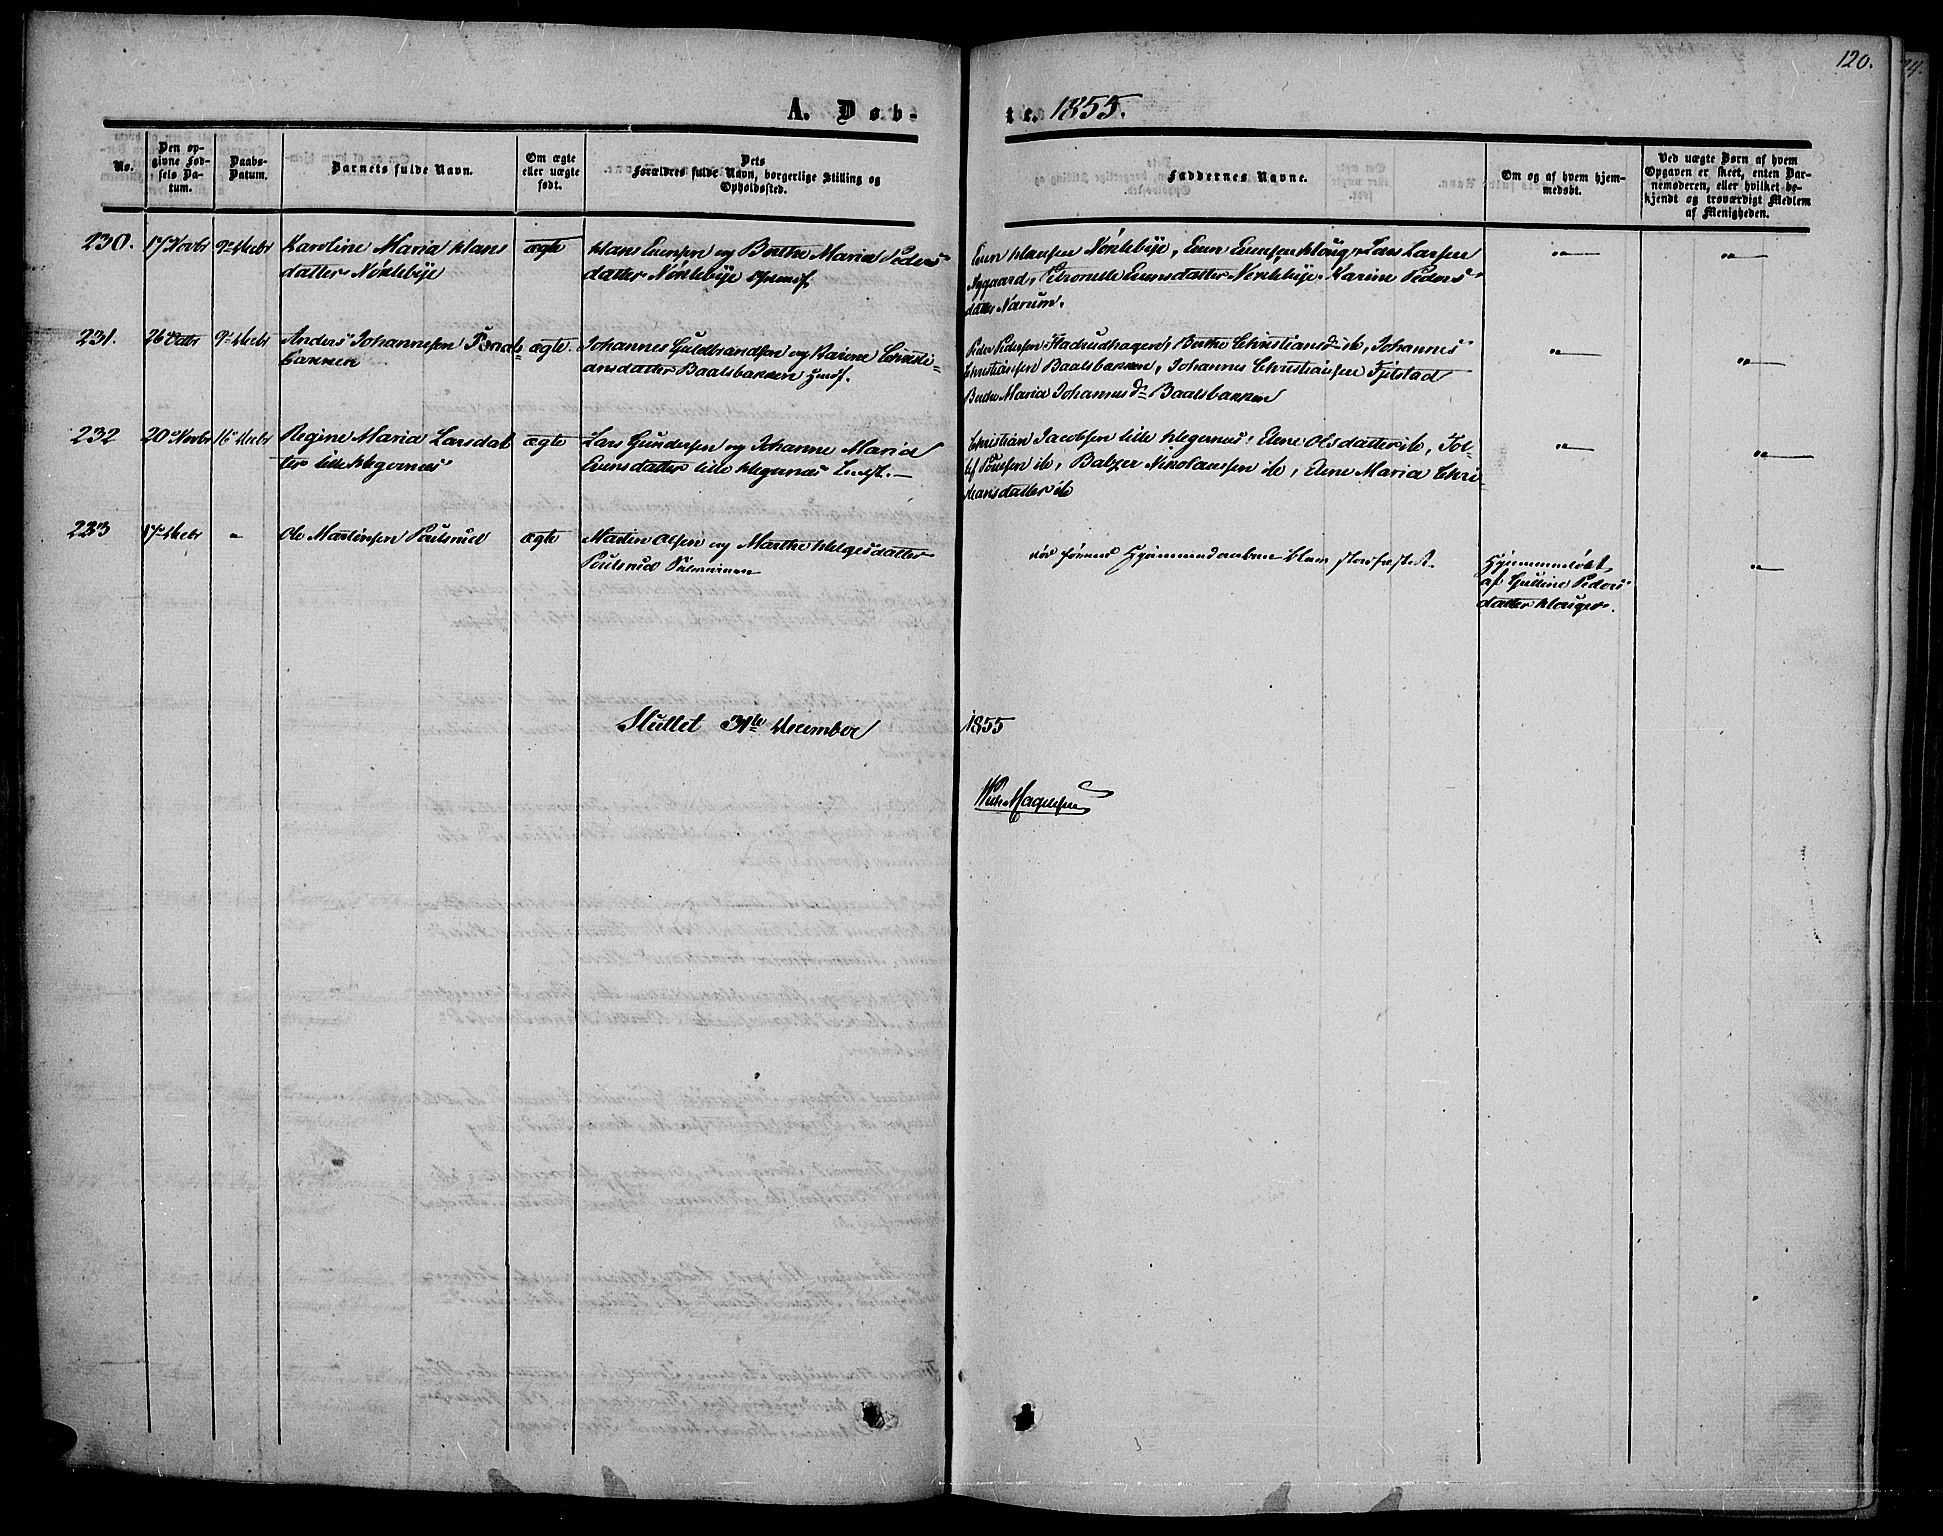 120.
A. Døb-
te. 1855.
No.
Den op-
givne Fød-
sels Da-
tum.
Daabs-
Datum.
Barnets fulde Navn.
Om ægte
eller uægte
født.
Dets
Forældres fulde Navn, borgerlige Stilling og
Opholdssted.
Faddernes Navne.
Om og af hvem hjem-
medøbt.
Ved uægte Børn af hvem
Opgaven er skeet, enten Bar-
nemoderen, eller hvilket be-
kjendt og troværdigt Medlem
af Menigheden.
230.
17 Novbr
9 Decbr
Karoline Maria Hans
datter Nøklebye
ægte
Hans Evensen og Berthe Maria Peders
datter Nøklebye
Even Hansen Nøklebye, Even Evensen Houg, Lars Larsen
Nygaard, Petronelle Evensdatter Nøklebye, Karine Peders
datter Narum.
231.
26 Octbr
9 Decbr
Anders Johannesen
bakken
ægte.
Johannes Guldbrandsen og Karine Christi-
ansdatter Baalsbakken Huusf.
Peder Pedersen Berthe Christiansd ib, Johannes
Christiansen Baalsbakken, Johannes Christiansen Fjelstad
Berthe Maria Johannesd Baalsbakken
232
20 Novbr
16 Decbr
Regine Maria Larsdat
ter lille Hegernæs
ægte
Lars Gundersen og Johanne Maria
Evensdatter lille Hegernæs
Christian Jacobsen lille Hegernæs, Elene Olsdatter ib, Tol-
lef ib, Balzer Nikolaissen ib, Elene Maria Chri
stiansdatter ib
233
17 Decbr
Ole Martinsen Poulsrud
ægte
Martin Olsen og Marthe Helgesdatter
Poulsrud
døde førend Hjemmedaaben blev stadfæstet.
Hjemmedøbt
af Gulline Peders
datter Hougen.
Sluttet 31te December
1855
W. Magelssen